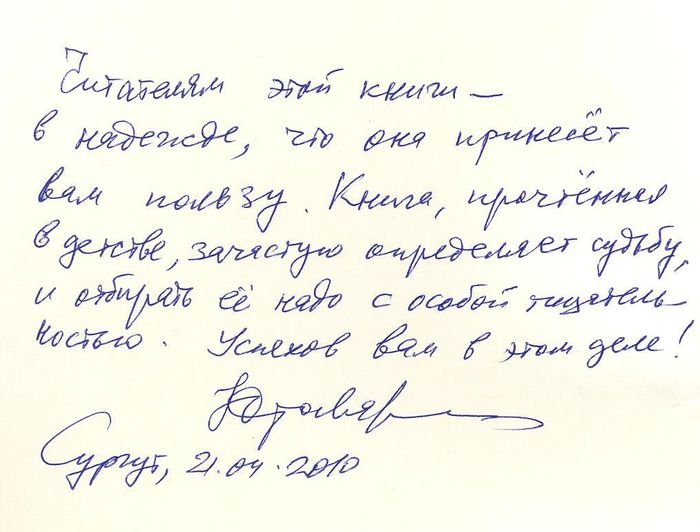 Читателям этой книги —
в надежде, что она принесёт
вам пользу. Книга, прочтённая
в детстве, зачастую определяет судьбу,
и отбирать её надо с особой тщатель-
ностью. Успехов вам в этом деле!
Сургут, 21.04.2010